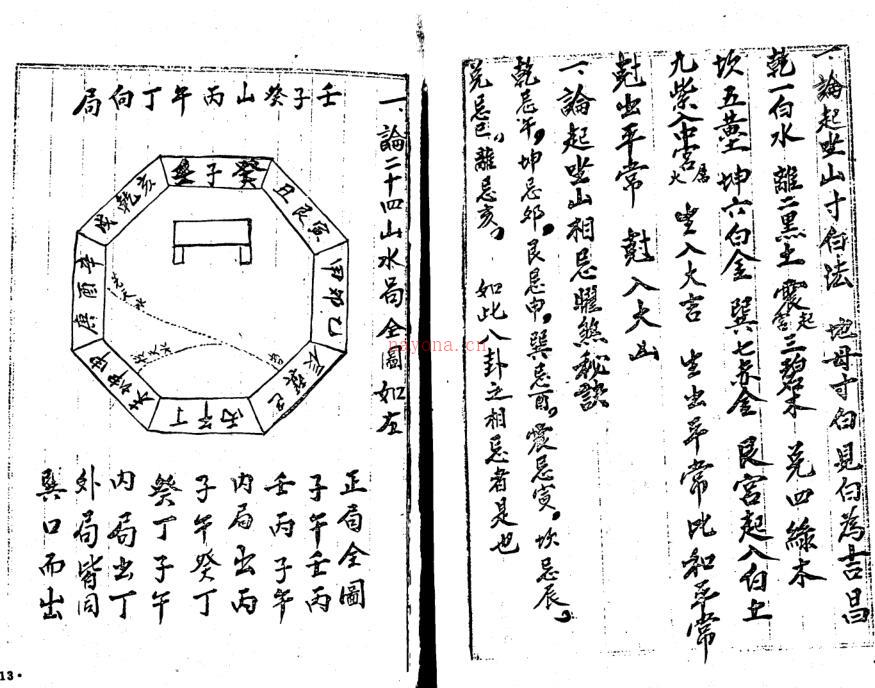 一論起坐山寸白法 地母寸白見白為吉昌
乾一白水 離二黑土 震宮起三碧木 兌四綠木
坎五黃土 坤六白金 巽七赤金 艮宮起八白土
九紫入中宮屬火 生入大吉 生出平常 比和平常
尅出平常 尅入大凶
一論起坐山相忌曜煞秘訣
乾忌午。坤忌卯。艮忌申。巽忌酉。震忌寅。坎忌辰。
兌忌巳。離忌亥。 如此八卦之相忌者是也
一論二十四山水局全圖如左
壬子癸山丙午丁向局
壬子癸
丑艮寅
甲卯乙
辰巽巳
丙午丁
未坤申
庚酉辛
戌乾亥
先天水
正局全圖
子午壬丙
壬丙子午
內局出丙
子午癸丁
癸丁子午
內局出丁
外局皆同
巽口而出
13
nayona.cn